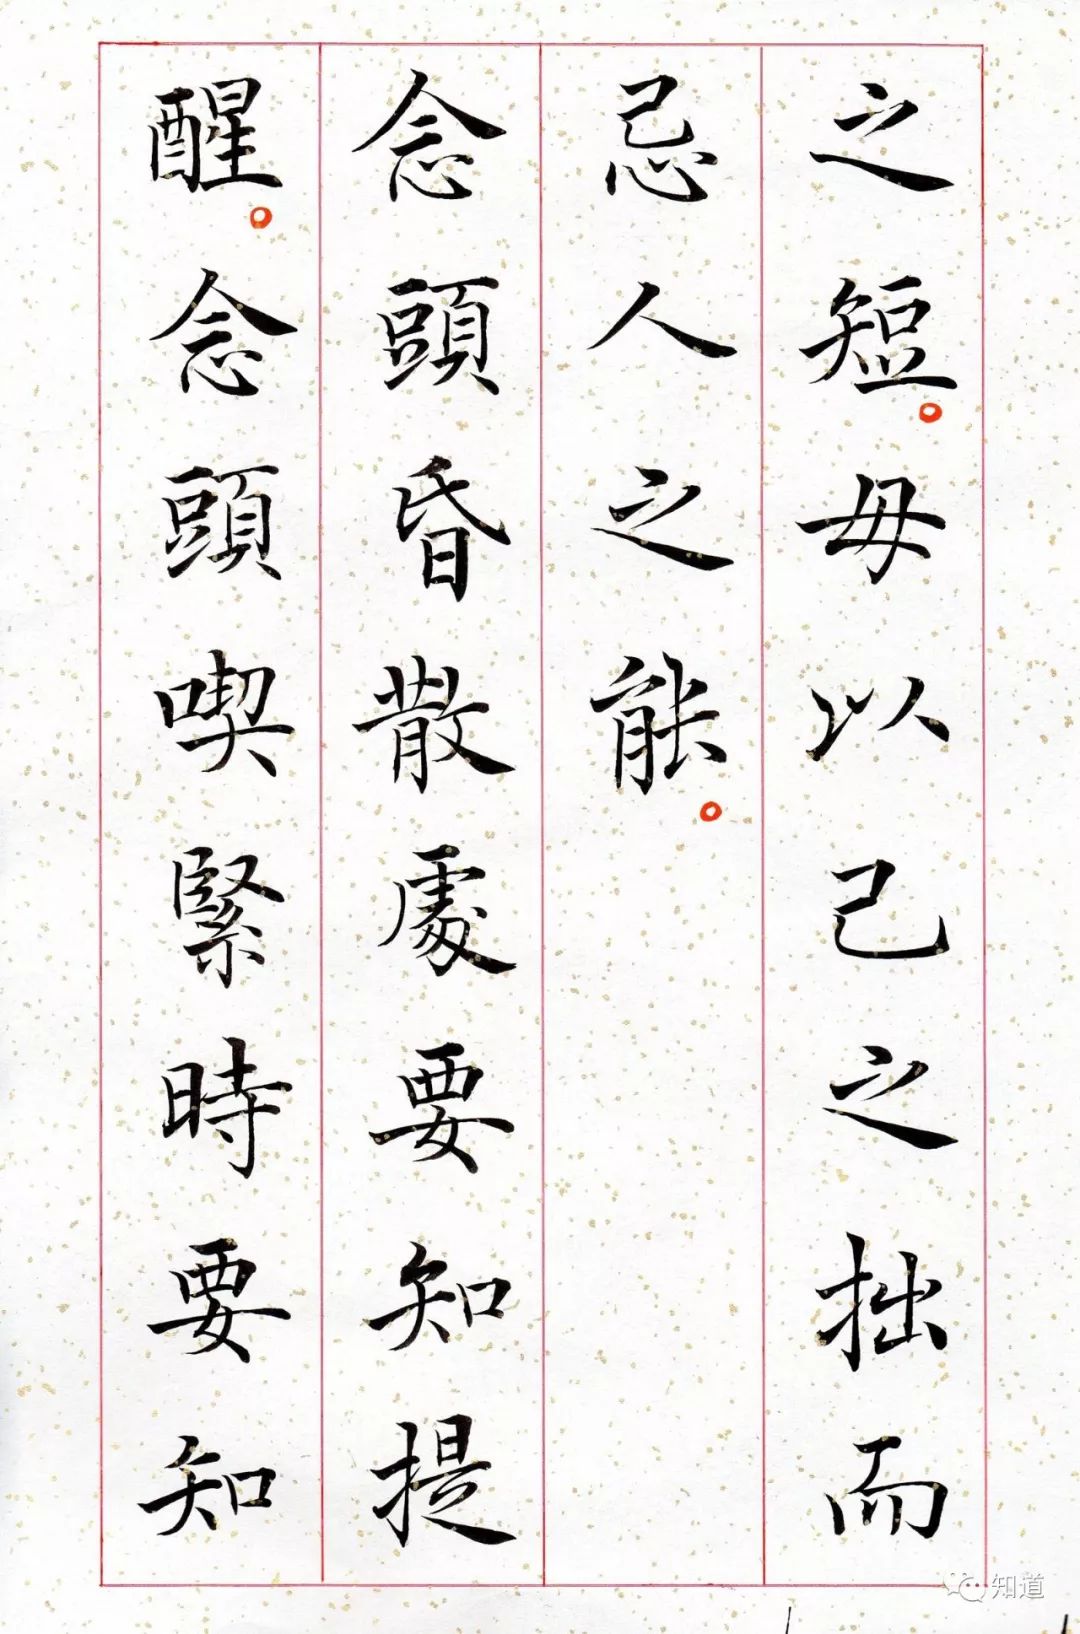 之短。毋以己之拙而
忌人之能。
念頭昏散處要知提
醒。念頭喫緊時要知
知道